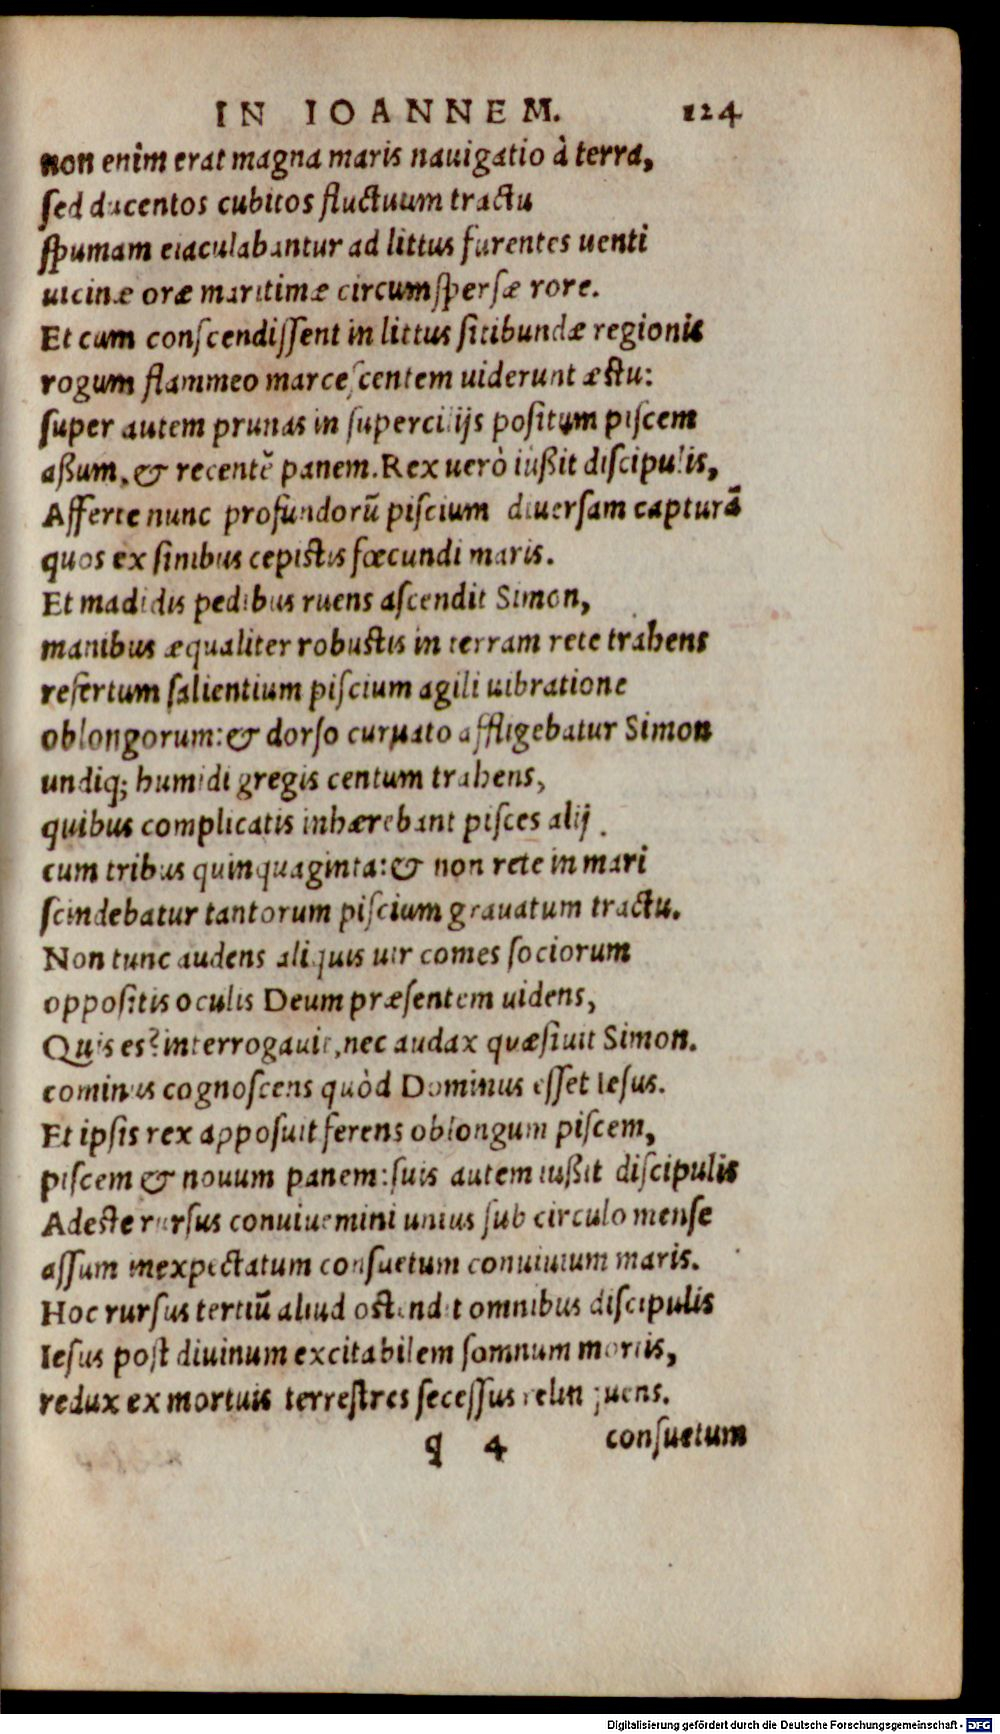 IN IOANNEM. 124
non enim erat magna maris nauigatio à terra,
ſed ducentos cubitos fluctuum tractu
ſpumam eiaculabantur ad littus furentes uenti
uicinæ oræ maritimæ circumſperſæ rore.
Et cum conſcendiſſent in littus ſitibundæ regionis
rogum flammeo marceſcentem uiderunt æſtu:
ſuper autem prunas in ſupercilijs poſitum piſcem
aßum, & recentẽ panem. Rex uerò iußit diſcipulis,
Afferte nunc profundorũ piſcium diuerſam capturã
quos ex ſinibus cepiſtis fœcundi maris.
Et madidis pedibus ruens aſcendit Simon,
manibus æqualiter robuſtis in terram rete trahens
refertum ſalientium piſcium agili uibratione
oblongorum: & dorſo curuato affligebatur Simon
undiq; humidi gregis centum trahens,
quibus complicatis inhærebant piſces alij.
cum tribus quinquaginta: & non rete in mari
ſcindebatur tantorum piſcium grauatum tractu.
Non tunc audens aliquis uir comes ſociorum
oppoſitis oculis Deum præſentem uidens,
Quis es? interrogauit, nec audax quæſiuit Simon.
cominus cognoſcens quòd Dominus eſſet Ieſus.
Et ipſis rex appoſuit ferens oblongum piſcem,
piſcem & nouum panem: ſuis autem iußit diſcipulis
Adeſte rurſus conuiuemini unius ſub circulo menſe
aſſum inexpectatum conſuetum conuiuium maris.
Hoc rurſus tertiũ aliud oſtendit omnibus diſcipulis
Ieſus poſt diuinum excitabilem ſomnum mortis,
redux ex mortuis terreſtres ſeceſſus relinquens.
q 4 conſuetum
Digitalisierung gefördert durch die Deutsche Forschungsgemeinschaft - DFG